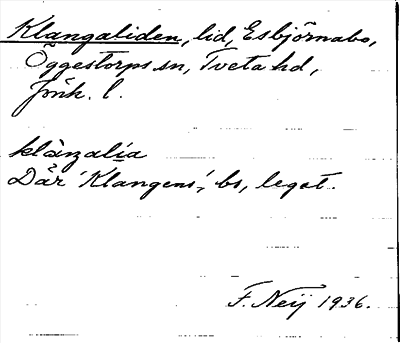 Klangaliden, lid, Esbjörnabo,
Öggestorps sn, Tveta hd,
Jönk. l.
klàŋalía
Där 'Klangens', bs, legat.
F. Neij 1936.